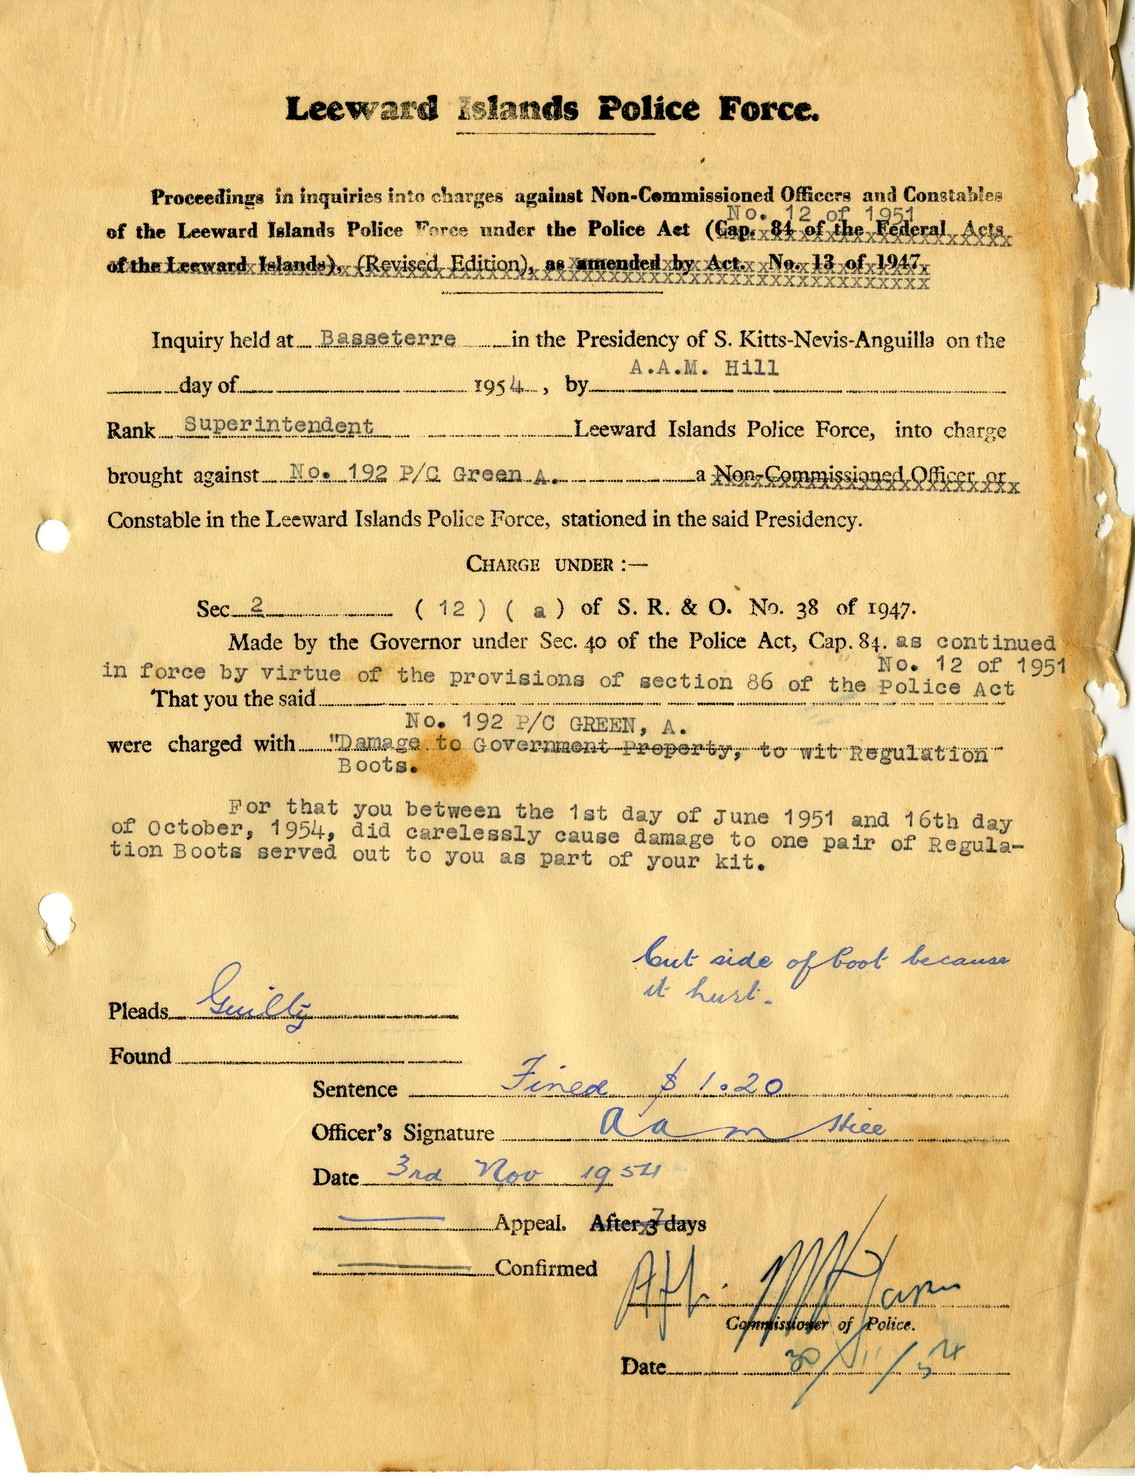 Leeward Islands Police Force.
Proceedings in inquiries into charges against Non-Commissioned Officers and Constables
No. 12 of 1951
of the Leeward Islands Police Force under the Police Act (Cap. 84 of the Federal Acts
of the Leeward Islands), (Revised Edition), as amended by Act. No. 13 of 1947.
Inquiry held at Basseterre in the Presidency of S. Kitts-Nevis-Anguilla on the
A.A.M. Hill
day of 1954, by
Rank Superintendent Leeward Islands Police Force, into charge
brought against No. 192 P/C Green A. a Non-Commissioned Officer or
Constable in the Leeward Islands Police Force, stationed in the said Presidency.
CHARGE UNDER :—
Sec 2 ( 12 ) ( a ) of S. R. & O. No. 38 of 1947.
Made by the Governor under Sec. 40 of the Police Act, Cap. 84. as continued
No. 12 of 1951
in force by virtue of the provisions of section 86 of the Police Act
That you the said
No. 192 P/C GREEN, A.
were charged with "Damage to Government Property, to wit Regulation
Boots.
For that you between the 1st day of June 1951 and 16th day
of October, 1954, did carelessly cause damage to one pair of Regula-
tion Boots served out to you as part of your kit.
Cut side of boot because
it hurt.
Pleads Guilty
Found
Sentence Fined $1.20
Officer's Signature A A M Hill
Date 3rd Nov 1954
Appeal. After 3 7 days
Confirmed
Commissioner of Police.
Date 30/11/54